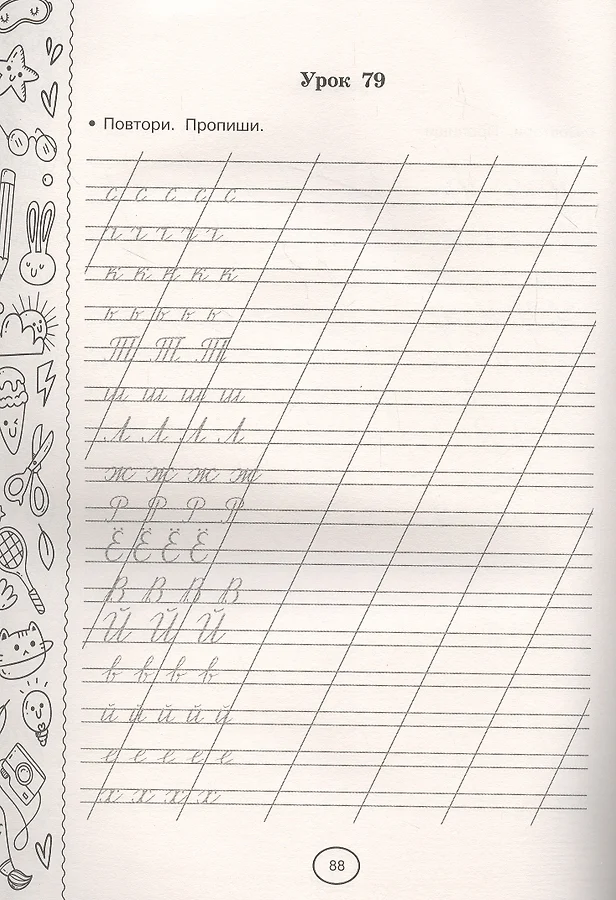 Урок 79
• Повтори. Пропиши.
с с с с с
г г г г г
к к к к к
ь ь ь ь ь
Т Т Т
ш ш ш ш
Л Л Л Л
ж ж ж ж
Р Р Р Р
Ё Ё Ё Ё
В В В В
Й Й Й
в в в в
й й й й й
е е е е е
х х х х
88